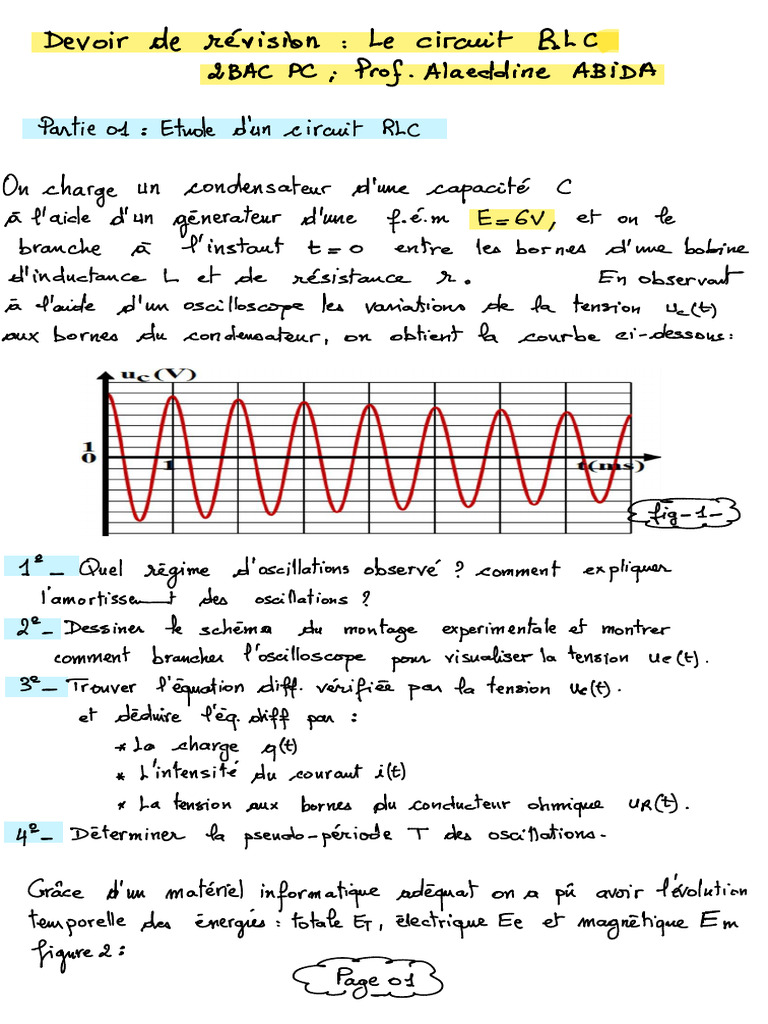 Devoir de révision : Le circuit RLC
2BAC PC ; Prof. Alaeddine ABIDA
Partie 01 : Etude d'un circuit RLC
On charge un condensateur d'une capacité C
à l'aide d'un génerateur d'une f.é.m E=6V, et on le
branche à l'instant t=0 entre les bornes d'une bobine
d'inductance L et de résistance r. En observant
à l'aide d'un oscilloscope les variations de la tension uc(t)
aux bornes du condensateur, on obtient la courbe ci-dessous:
uC(V)
1
0
1
t(ms)
fig-1-
1º_ Quel régime d'oscillations observé ? comment expliquer
l'amortissement des oscillations ?
2º_ Dessiner le schéma du montage experimentale et montrer
comment brancher l'oscilloscope pour visualiser la tension uc(t).
3º_ Trouver l'équation diff. vérifiée par la tension uc(t).
et déduire l'éq. diff par :
* La charge q(t)
* L'intensité du courant i(t)
* La tension aux bornes du conducteur ohmique uR(t).
4º_ Déterminer la pseudo-période T des oscillations.
Grâce d'un matériel informatique adéquat on a pû avoir l'évolution
temporelle des énergies : totale ET, électrique Ee et magnétique Em
figure 2 :
Page 01